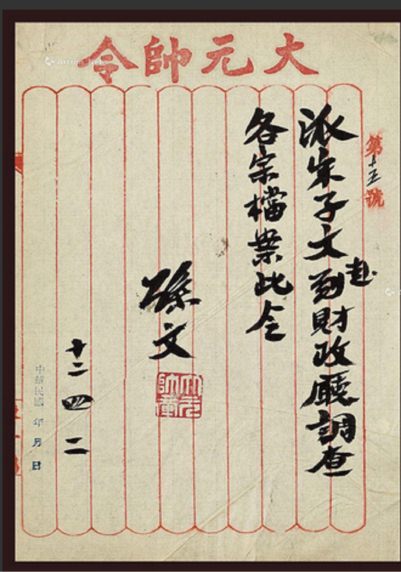 大元帥令
第十五號
派宋子文到財政廳調查
赴
各宗檔案此令
孫文
大元帥章
十二 四 二
中華民國 年 月 日